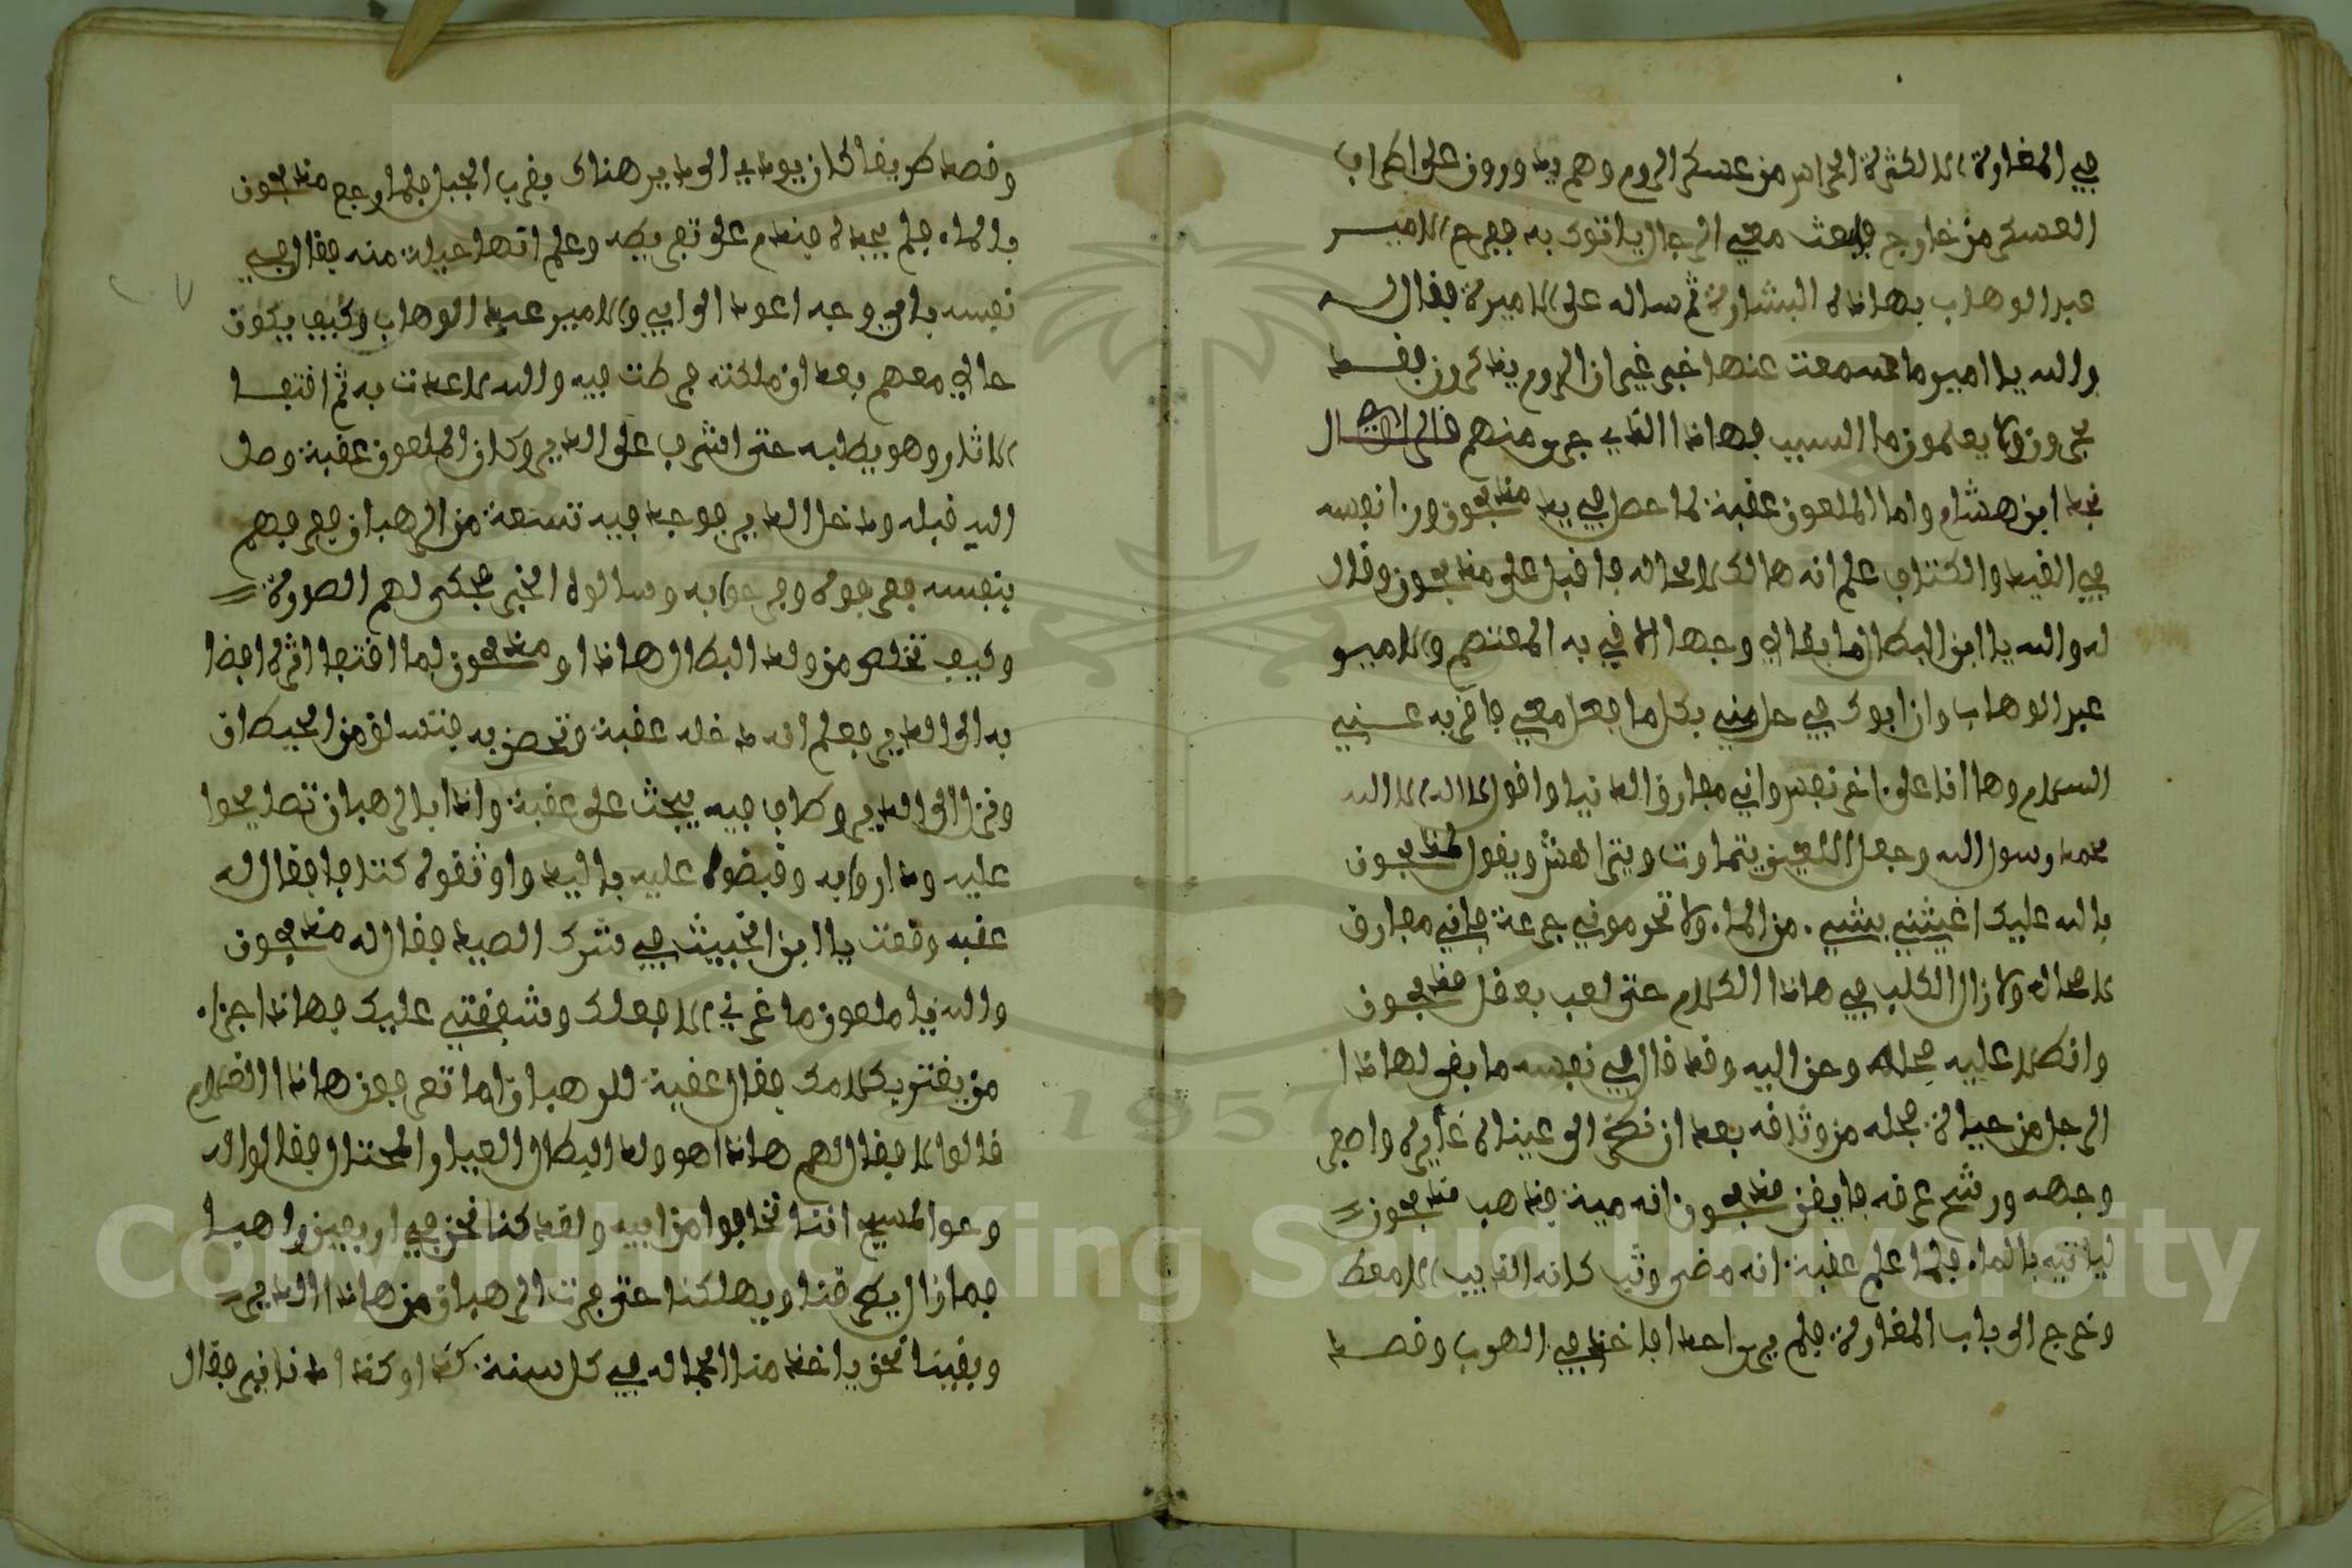 في المغارة الا لكثرة الحراس من عسكر الروم وهم يدورون على اطراف
العسكر من خارج فابعث معي الرجال ياتوك به ففرح الامير
عبد الوهاب بهاذه البشارة ثم ساله على الاميرة فقال له
والله يا امير ما سمعت عنها خبر غير ان الروم يذكرون بقسط
يجرون ولا يعلمون ما السبب فهاذا الذي جرى منهم قال
نجد ابن هشام واما الملعون عقبة لما حصل في يد مذبحون وراء نفسه
في القيد والكتاف علم انه هالك لا محاله فاقبل على مذبحون وقال
له والله يا ابن البطال ما بقا لي وجها الاقي به المعتصم والامير
عبد الوهاب وان ابوك في حل مني بكل ما فعل معي فاقريه عني
السلام وها انا على اخر نفس واني مفارق الدنيا واقول لا اله الا الله
محمد رسول الله وجعل اللعين يتماوت ويتراهش ويقول لمذبحون
بالله عليك اغيثني بشيء من الماء ولا تحرموني جرعة فاني مفارق
لا محاله ولا زال الكلب في هاذا الكلام حتى لعب بعقل مذبحون
وانطلا عليه محاله وحن اليه وقد قال في نفسه ما بقى لهاذا
الرجل من حياة فحله من وثاقه بعد ان نظر الى عيناه غايرة واصفر
وجهه ورشح عرقه فايقن مذبحون انه ميت فذهب مذبحون
لياتيه بالماء فلما علم عقبة انه مضى وثب كانه الذيب الامعط
وخرج الى باب المغارة فلم يرى احدا فاخذ في الهرب وقصد
وقصد طريقا كان يودي الى دير هناك بقرب الجبل فلما رجع مذبحون
بالماء فلم يجده فندم على تفريطه وعلم انها حيلة منه فقال في
نفسه باي وجه اعود الى ابي والامير عبد الوهاب وكيف يكون
حالي معهم بعد ان ملكته فرطت فيه والله لا عدت به ثم اقتفا
الاثار وهو يطلبه حتى اشرف على الدير وكان الملعون عقبة وصل
اليه قبله ودخل الدير فوجد فيه تسعة من الرهبان فعرفهم
بنفسه فعرفوه وفرحوا به وسالوه الخبر فحكى لهم الصورة
وكيف تخلص من ولد البطال هاذا ومذبحون لما اقتفا اثره افضا
به الى الدير فعلم انه دخله عقبة وتحصن به فتسلق من الحيطان
ونزل الى الدير وطاف فيه يبحث على عقبة واذا بالرهبان تصايحوا
عليه وداروا به وقبضوه عليه باليد واوثقوه كتافا فقال له
عقبه وقعت يا ابن الخبيث في شرك الصيد فقال له مذبحون
والله يا ملعون ما غرني الا فعلك وشفقتي عليك فهاذا جزاء
من يغتر بكلامك فقال عقبة للرهبان اما تعرفون هاذا الغلام
قالوا لا فقال لهم هاذا هو ولد البطال العيار المحتال فقالوا له
وحو المسيح اننا نخافوا من ابيه ولقد كنا نحن في اربعين راهبا
فما زال يطرقنا ويهلكنا حتى فرت الرهبان من هاذا الدير
وبقينا نحن ياخذ منا الجماله في كل سنة كذا وكذا دنانير فقال